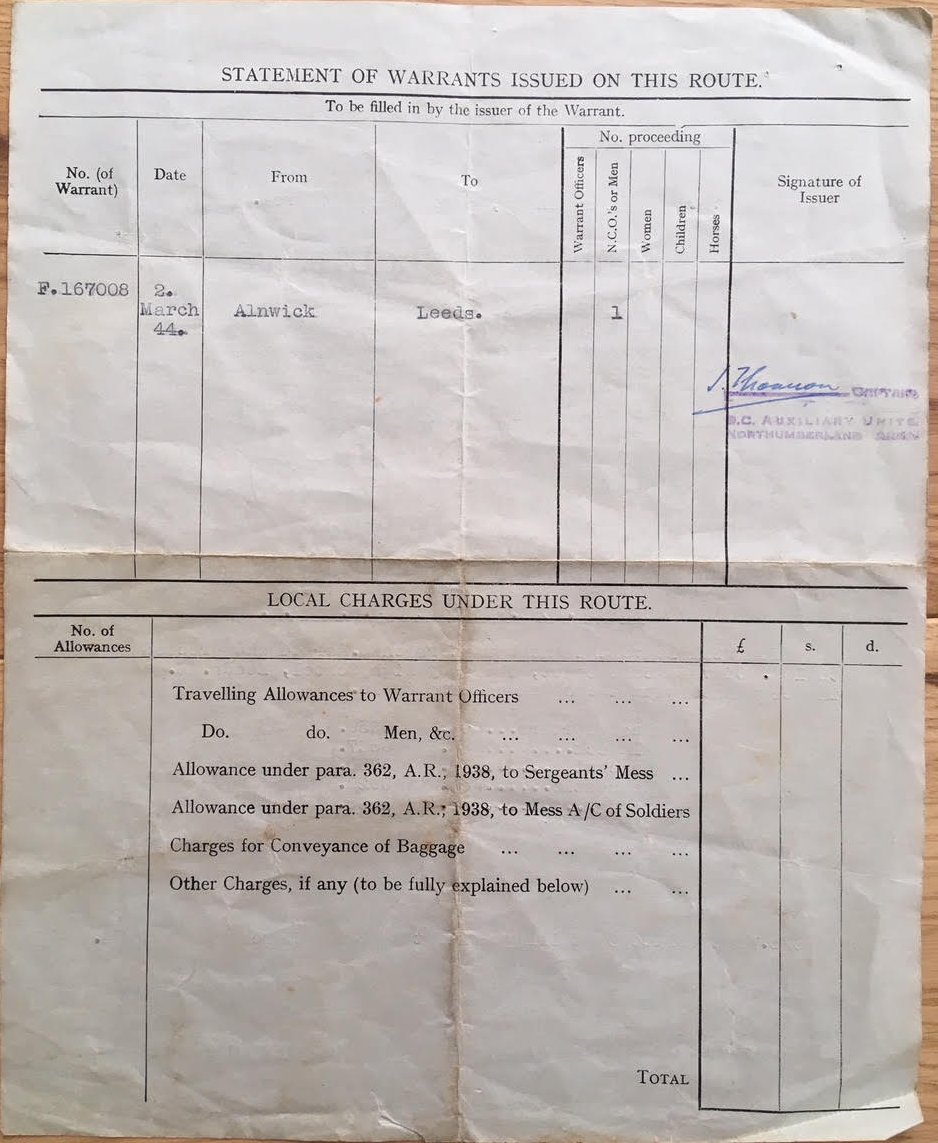 STATEMENT OF WARRANTS ISSUED ON THIS ROUTE.
To be filled in by the issuer of the Warrant.
No. (of Warrant)
Date
From
To
No. proceeding
Warrant Officers
N.C.O.'s or Men
Women
Children
Horses
Signature of
Issuer
F.167008
2.
March
44.
Alnwick
Leeds.
1
CAPTAIN
AUXILIARY UNITS
NORTHUMBERLAND AREA
LOCAL CHARGES UNDER THIS ROUTE.
No. of
Allowances
£ s. d.
Travelling Allowances to Warrant Officers ... ... ...
Do. do. Men, &c. ... ... ... ...
Allowance under para. 362, A.R., 1938, to Sergeants' Mess ...
Allowance under para. 362, A.R., 1938, to Mess A/C of Soldiers
Charges for Conveyance of Baggage ... ... ... ...
Other Charges, if any (to be fully explained below) ... ...
TOTAL